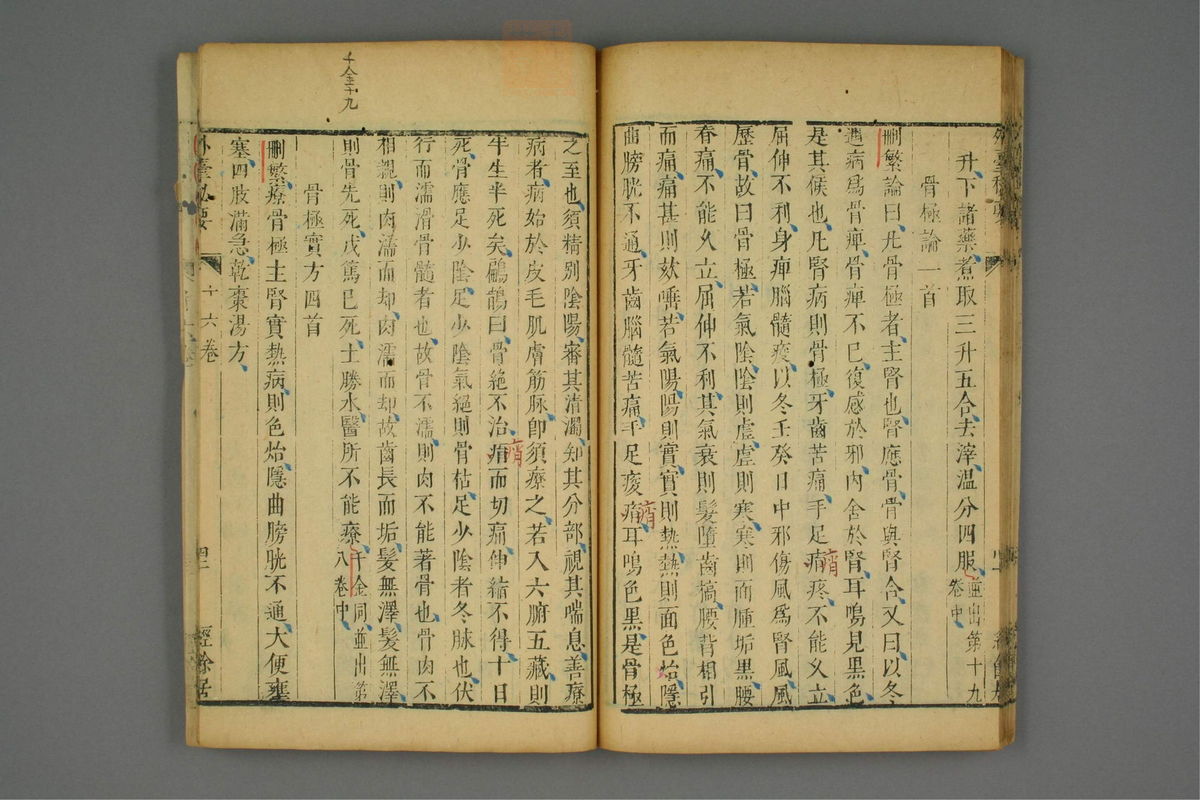 升下諸藥煮取三升五合去滓溫分四服並出第十九卷中
骨極論一首
刪繁論曰凡骨極者主腎也腎應骨骨與腎合又曰以冬
遇病為骨痺骨痺不已復感於邪內舍於腎耳鳴見黑色
是其候也凡腎病則骨極牙齒苦痛手足痟疼不能久立
屈伸不利身痺腦髓痠以冬壬癸日中邪傷風為腎風風
歷骨故曰骨極若氣陰陰則虛虛則寒寒則面腫垢黑腰
脊痛不能久立屈伸不利其氣衰則髮墮齒槁腰背相引
而痛痛甚則欬唾若氣陽陽則實實則熱熱則面色炲隱
曲膀胱不通牙齒腦髓苦痛手足痠痟耳鳴色黑是骨極
之至也須精別陰陽審其清濁知其分部視其喘息善療
病者病始於皮毛肌膚筋脉即須療之若入六腑五藏則
半生半死矣鸕鵲曰骨絕不治痟而切痛伸縮不得十日
死骨應足少陰足少陰氣絕則骨枯足少陰者冬脉也伏
行而濡滑骨髓者也故骨不濡則肉不能著骨也骨肉不
相親則肉濡而却肉濡而却故齒長而垢髮無澤髮無澤
則骨先死戊篤已死土勝水醫所不能療千金同並出第八卷中
骨極實方四首
刪繁療骨極主腎實熱病則色炲隱曲膀胱不通大便壅
塞四肢滿急乾棗湯方
外臺秘要 十六卷 經餘居
千金十九
痟
痟
痟